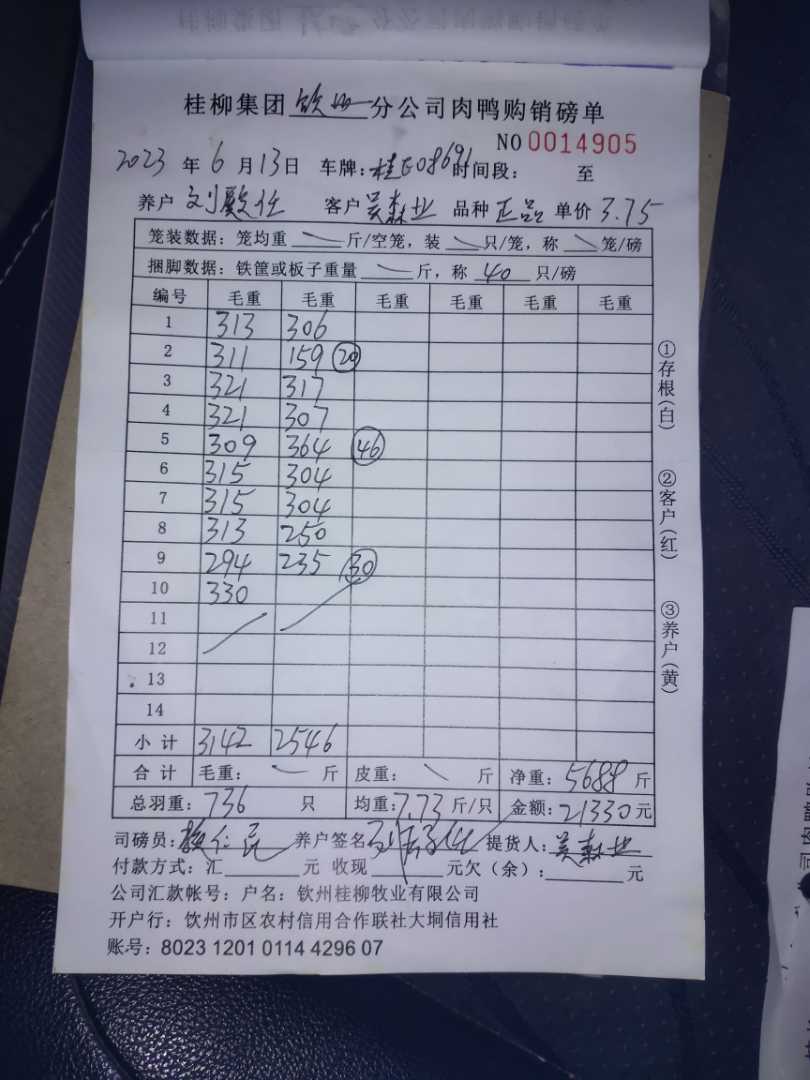 桂柳集团 钦州 分公司肉鸭购销磅单
NO 0014905
2023 年 6 月 13 日 车牌：桂E08691 时间段： 至
养户 刘 客户 吴森业 品种 正品 单价 3.75
笼装数据：笼均重 斤/空笼，装 只/笼，称 笼/磅
捆脚数据：铁筐或板子重量 斤，称 40 只/磅
编号 毛重 毛重 毛重 毛重 毛重 毛重
1 313 306
2 311 159 20
3 321 317
4 321 307
5 309 364 46
6 315 304
7 315 304
8 313 250
9 294 235 30
10 330
11
12
13
14
小计 3142 2546
合计 毛重： 斤 皮重： 斤 净重：5688 斤
总羽重：736 只 均重：7.73 斤/只 金额：21330 元
司磅员： 养户签名 提货人：吴森业
付款方式：汇 元 收现 元欠（余）： 元
公司汇款帐号：户名：钦州桂柳牧业有限公司
开户行：饮州市区农村信用合作联社大垌信用社
账号：8023 1201 0114 4296 07
①存根（白）
②客户（红）
③养户（黄）